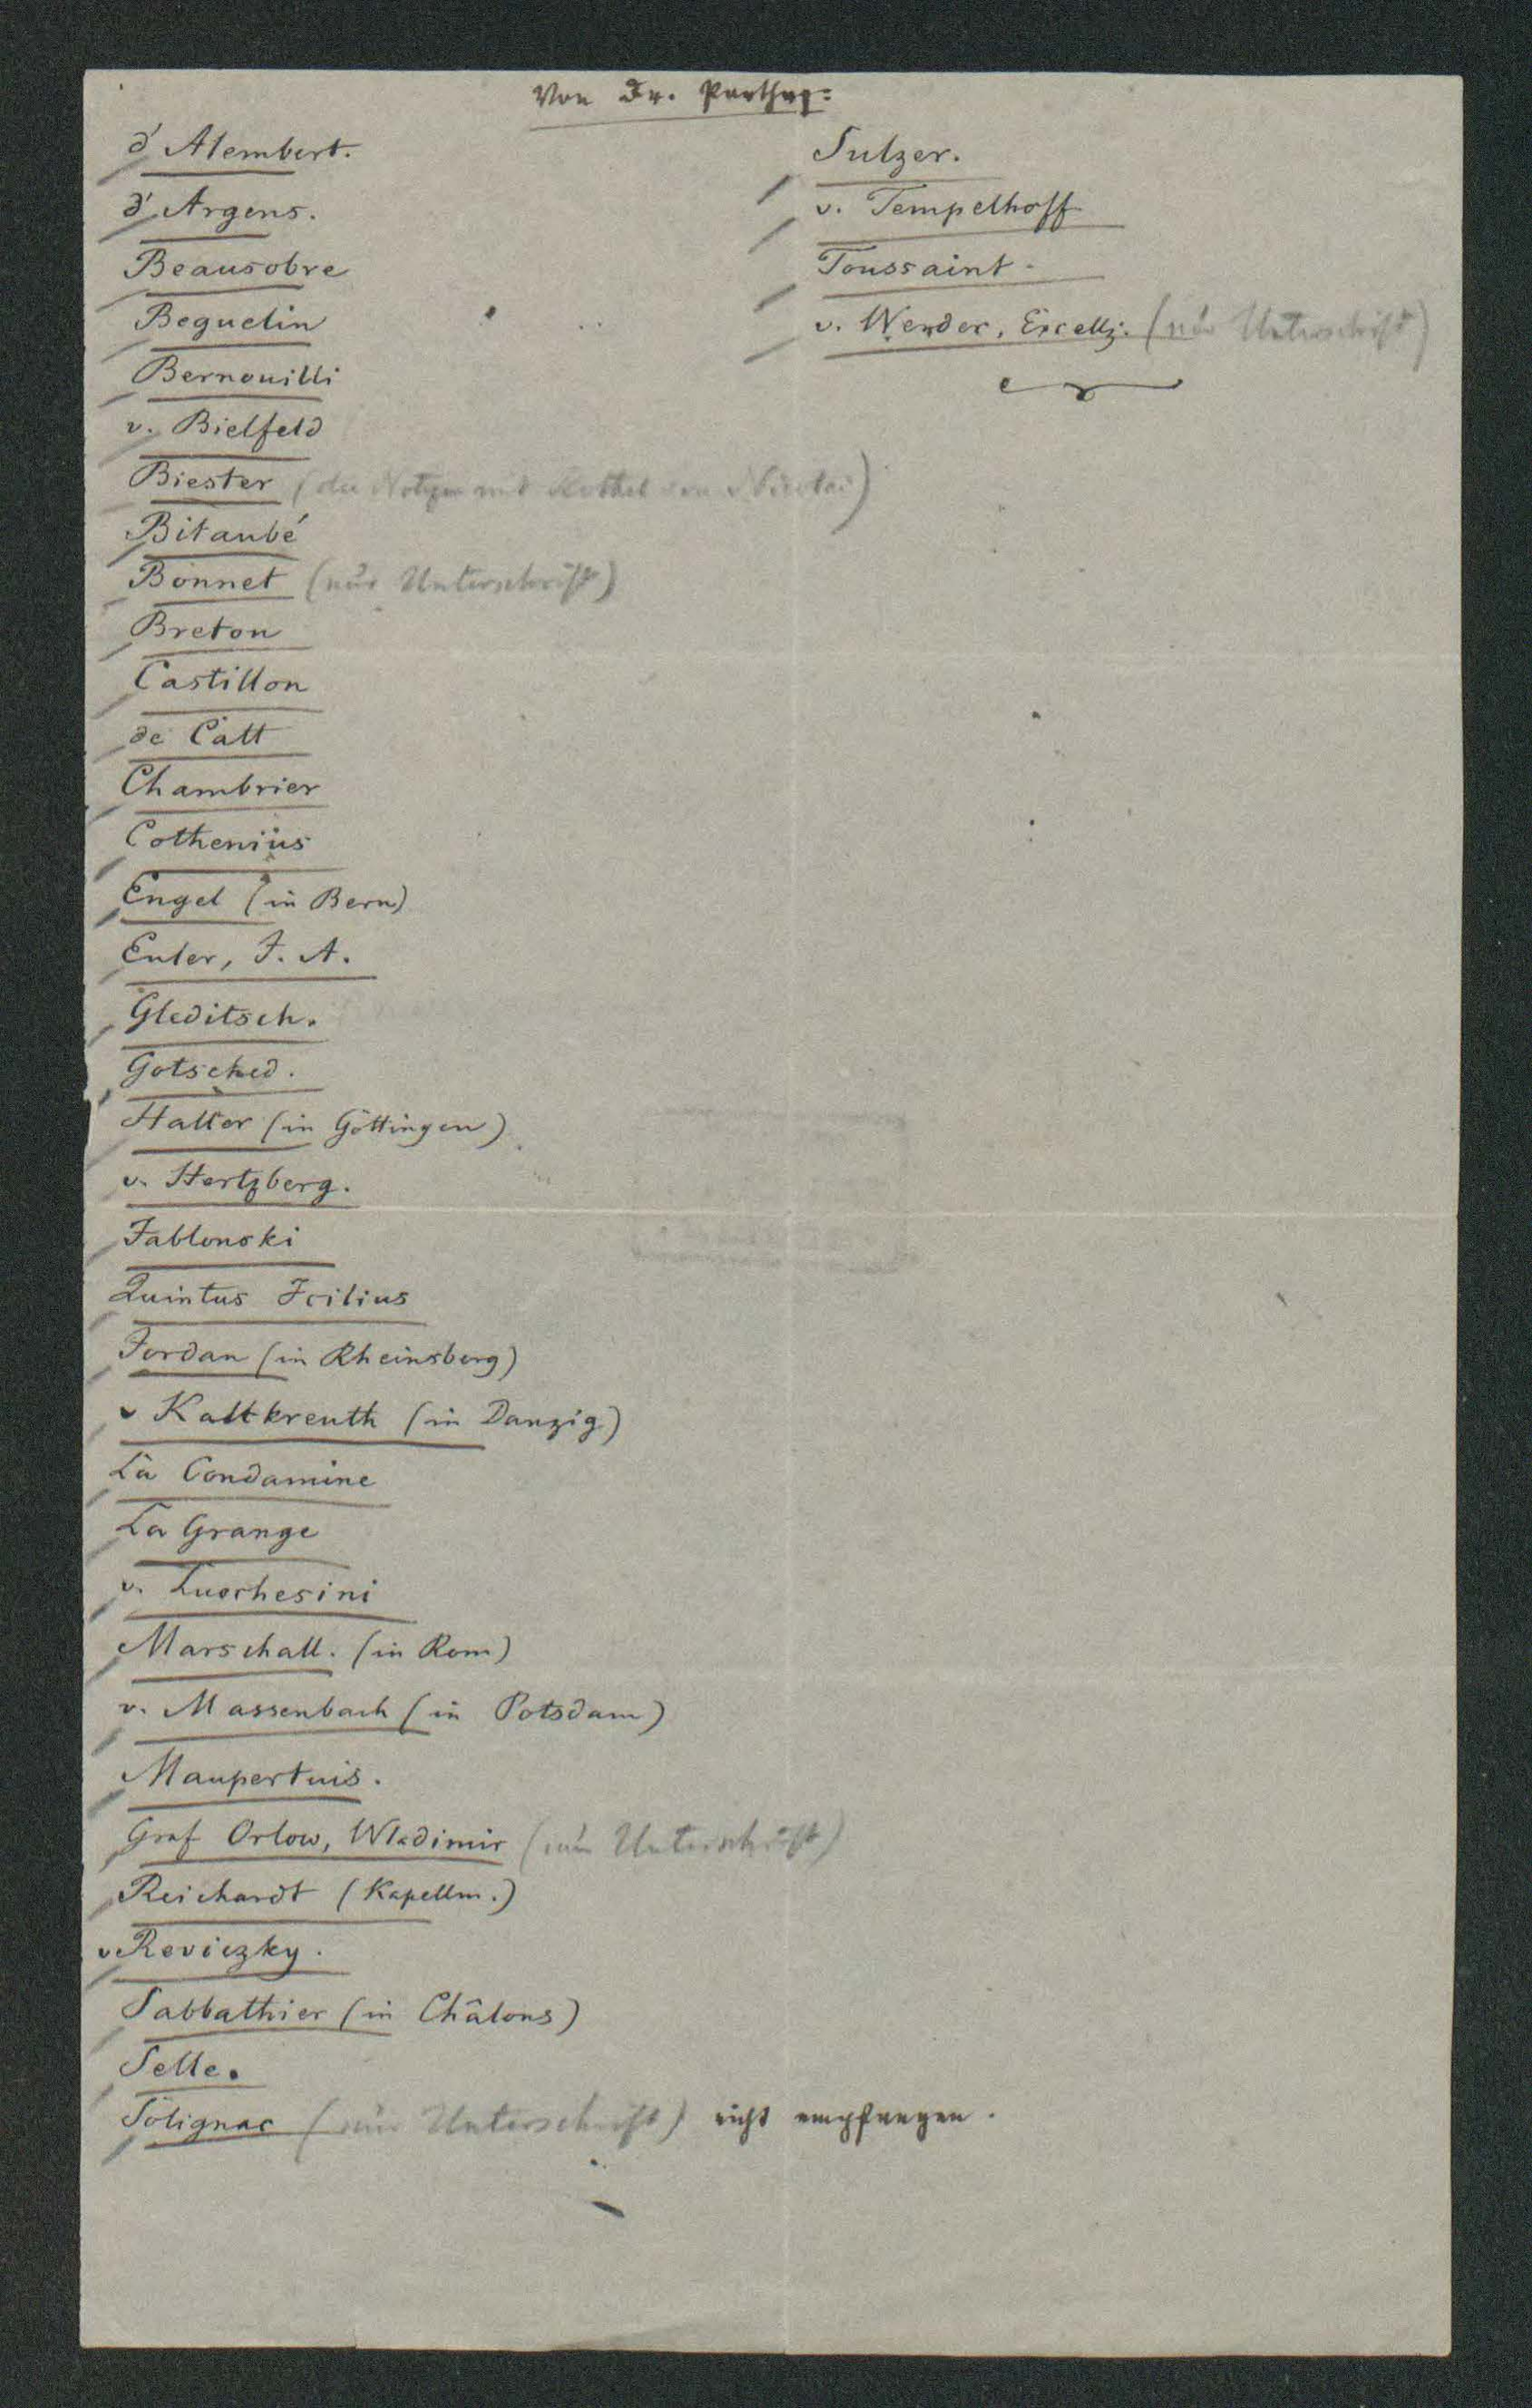 Von Dr. Parthey:
d'Alembert.
d'Argens.
Beausobre
Beguelin
Bernouilli
v. Bielfeld
Biester (die Notizen mit Röthel von Nicolai)
Bitaubé
Bonnet (nur Unterschrift)
Breton
Castillon
de Catt
Chambrier
Cothenius
Engel (in Bern)
Euler, J. A.
Gleditsch.
Gotsched.
Haller (in Göttingen)
v. Hertzberg.
Jablonski
Quintus Icilius
Jordan (in Rheinsberg)
v Kalkreuth (in Danzig)
La Condamine
La Grange
v. Lucchesini
Marschall. (in Rom)
v. Massenbach (in Potsdam)
Maupertuis.
Graf Orlow, Wladimir (nur Unterschrift)
Reichardt (Kapellm.)
v Reviczky.
Sabbathier (in Châlons)
Selle.
Solignac (nur Unterschrift) nicht empfangen.
Sulzer.
v. Tempelhoff
Toussaint.
v. Werder, Excellz. (nur Unterschrift)